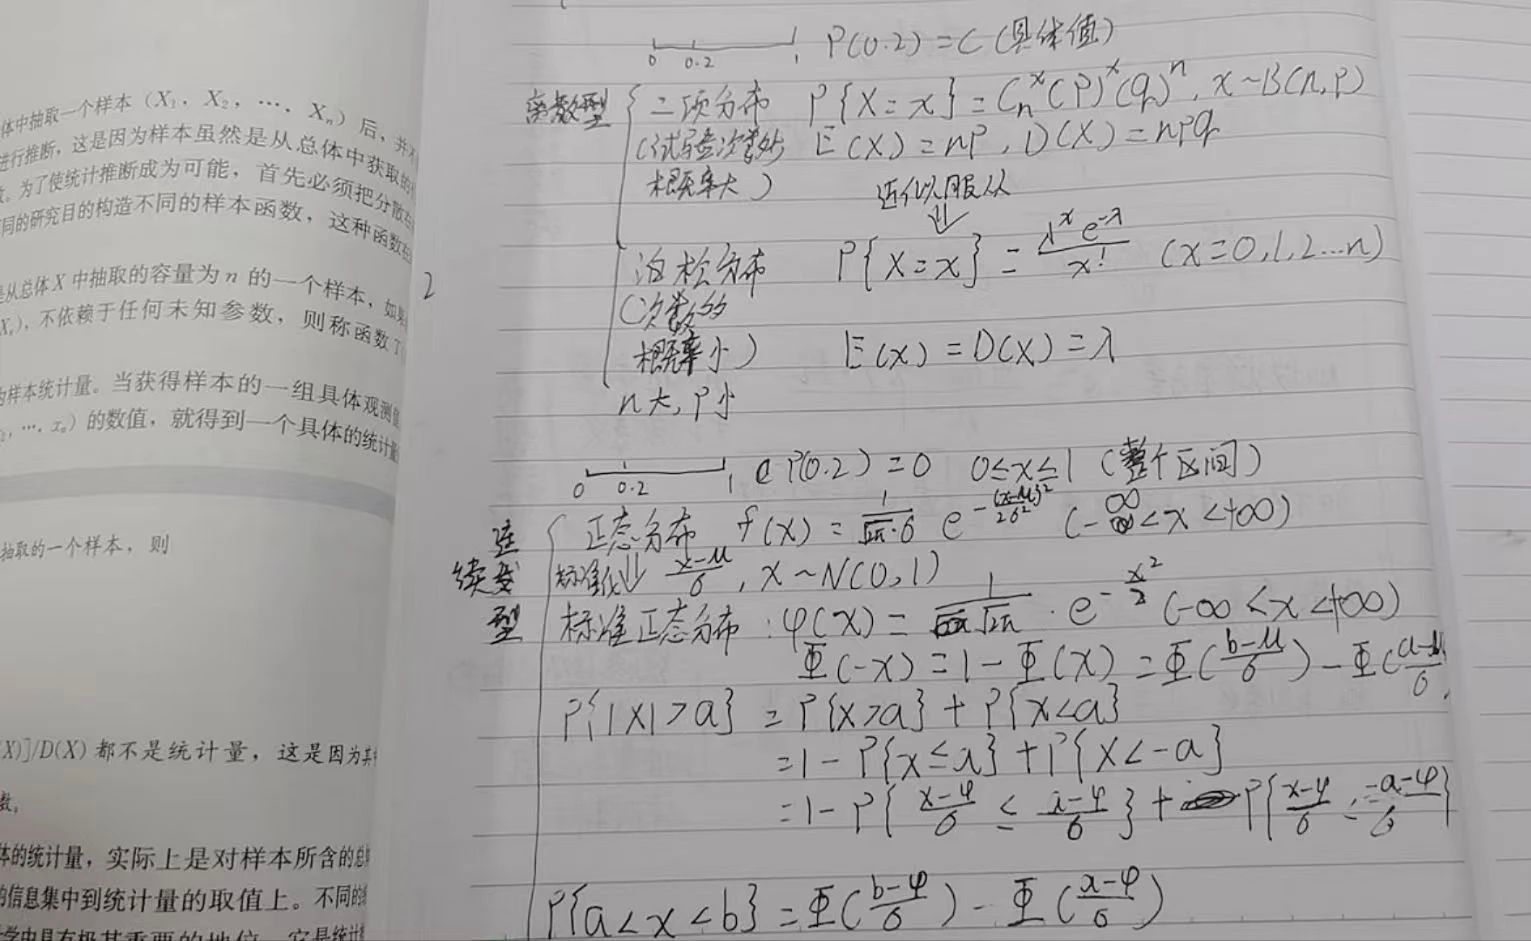 体中抽取一个样本（X₁，X₂，…，Xₙ）后，并
进行推断，这是因为样本虽然是从总体中获取的
数。为了使统计推断成为可能，首先必须把分散在
同的研究目的构造不同的样本函数，这种函数在
是从总体X中抽取的容量为n的一个样本，如果
Xₙ），不依赖于任何未知参数，则称函数T
为样本统计量。当获得样本的一组具体观测值
₂，…，xₙ）的数值，就得到一个具体的统计量
抽取的一个样本，则
X)]/D(X)都不是统计量，这是因为其
数。
体的统计量，实际上是对样本所含的总
的信息集中到统计量的取值上。不同的
学中具有极其重要的地位，它是统计
2
0 0.2 1 P(0.2)=C(具体值)
离散型 二项分布 P{X=x}=Cₙˣ(P)ˣ(q)ⁿ, x~B(n,p)
(试验次数的 E(X)=np, D(X)=npq
概率大) 近似服从
⇓
泊松分布 P{X=x}=λˣe^-λ/x! (x=0,1,2...n)
(次数的
概率小) E(x)=D(X)=λ
n大,P小
0 0.2 1 P(0.2)=0 0≤x≤1 (整个区间)
连续型 正态分布 f(x)=1/(√2π·σ) e^-(x-μ)²/2σ² (-∞<x<+∞)
标准化⇓ (x-μ)/σ, x~N(0,1)
标准正态分布:φ(x)=1/√2π·e^-x²/2 (-∞<x<+∞)
Φ(-x)=1-Φ(x)=Φ((b-μ)/σ)-Φ((a-μ)/σ
P{|X|>a}=P{x>a}+P{x<a}
=1-P{x≤a}+P{X<-a}
=1-P{(x-φ)/σ≤(a-φ)/σ}+P{(x-φ)/σ<(-a-φ)/σ}
P{a<x<b}=Φ((b-φ)/σ)-Φ((a-φ)/σ)